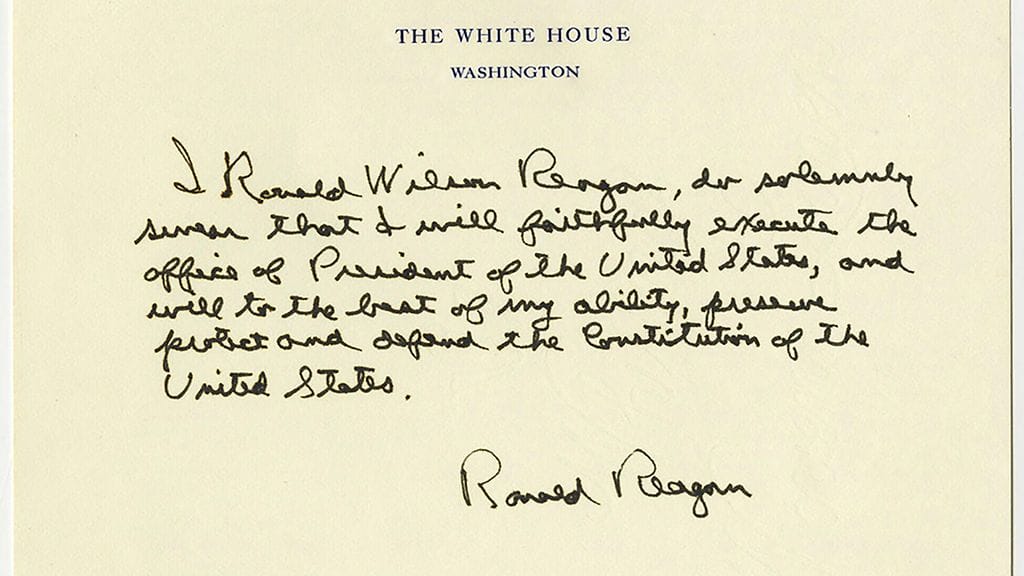 THE WHITE HOUSE
WASHINGTON
I Ronald Wilson Reagan, do solemnly
swear that I will faithfully execute the
office of President of the United States, and
will to the best of my ability, preserve
protect and defend the Constitution of the
United States.
Ronald Reagan